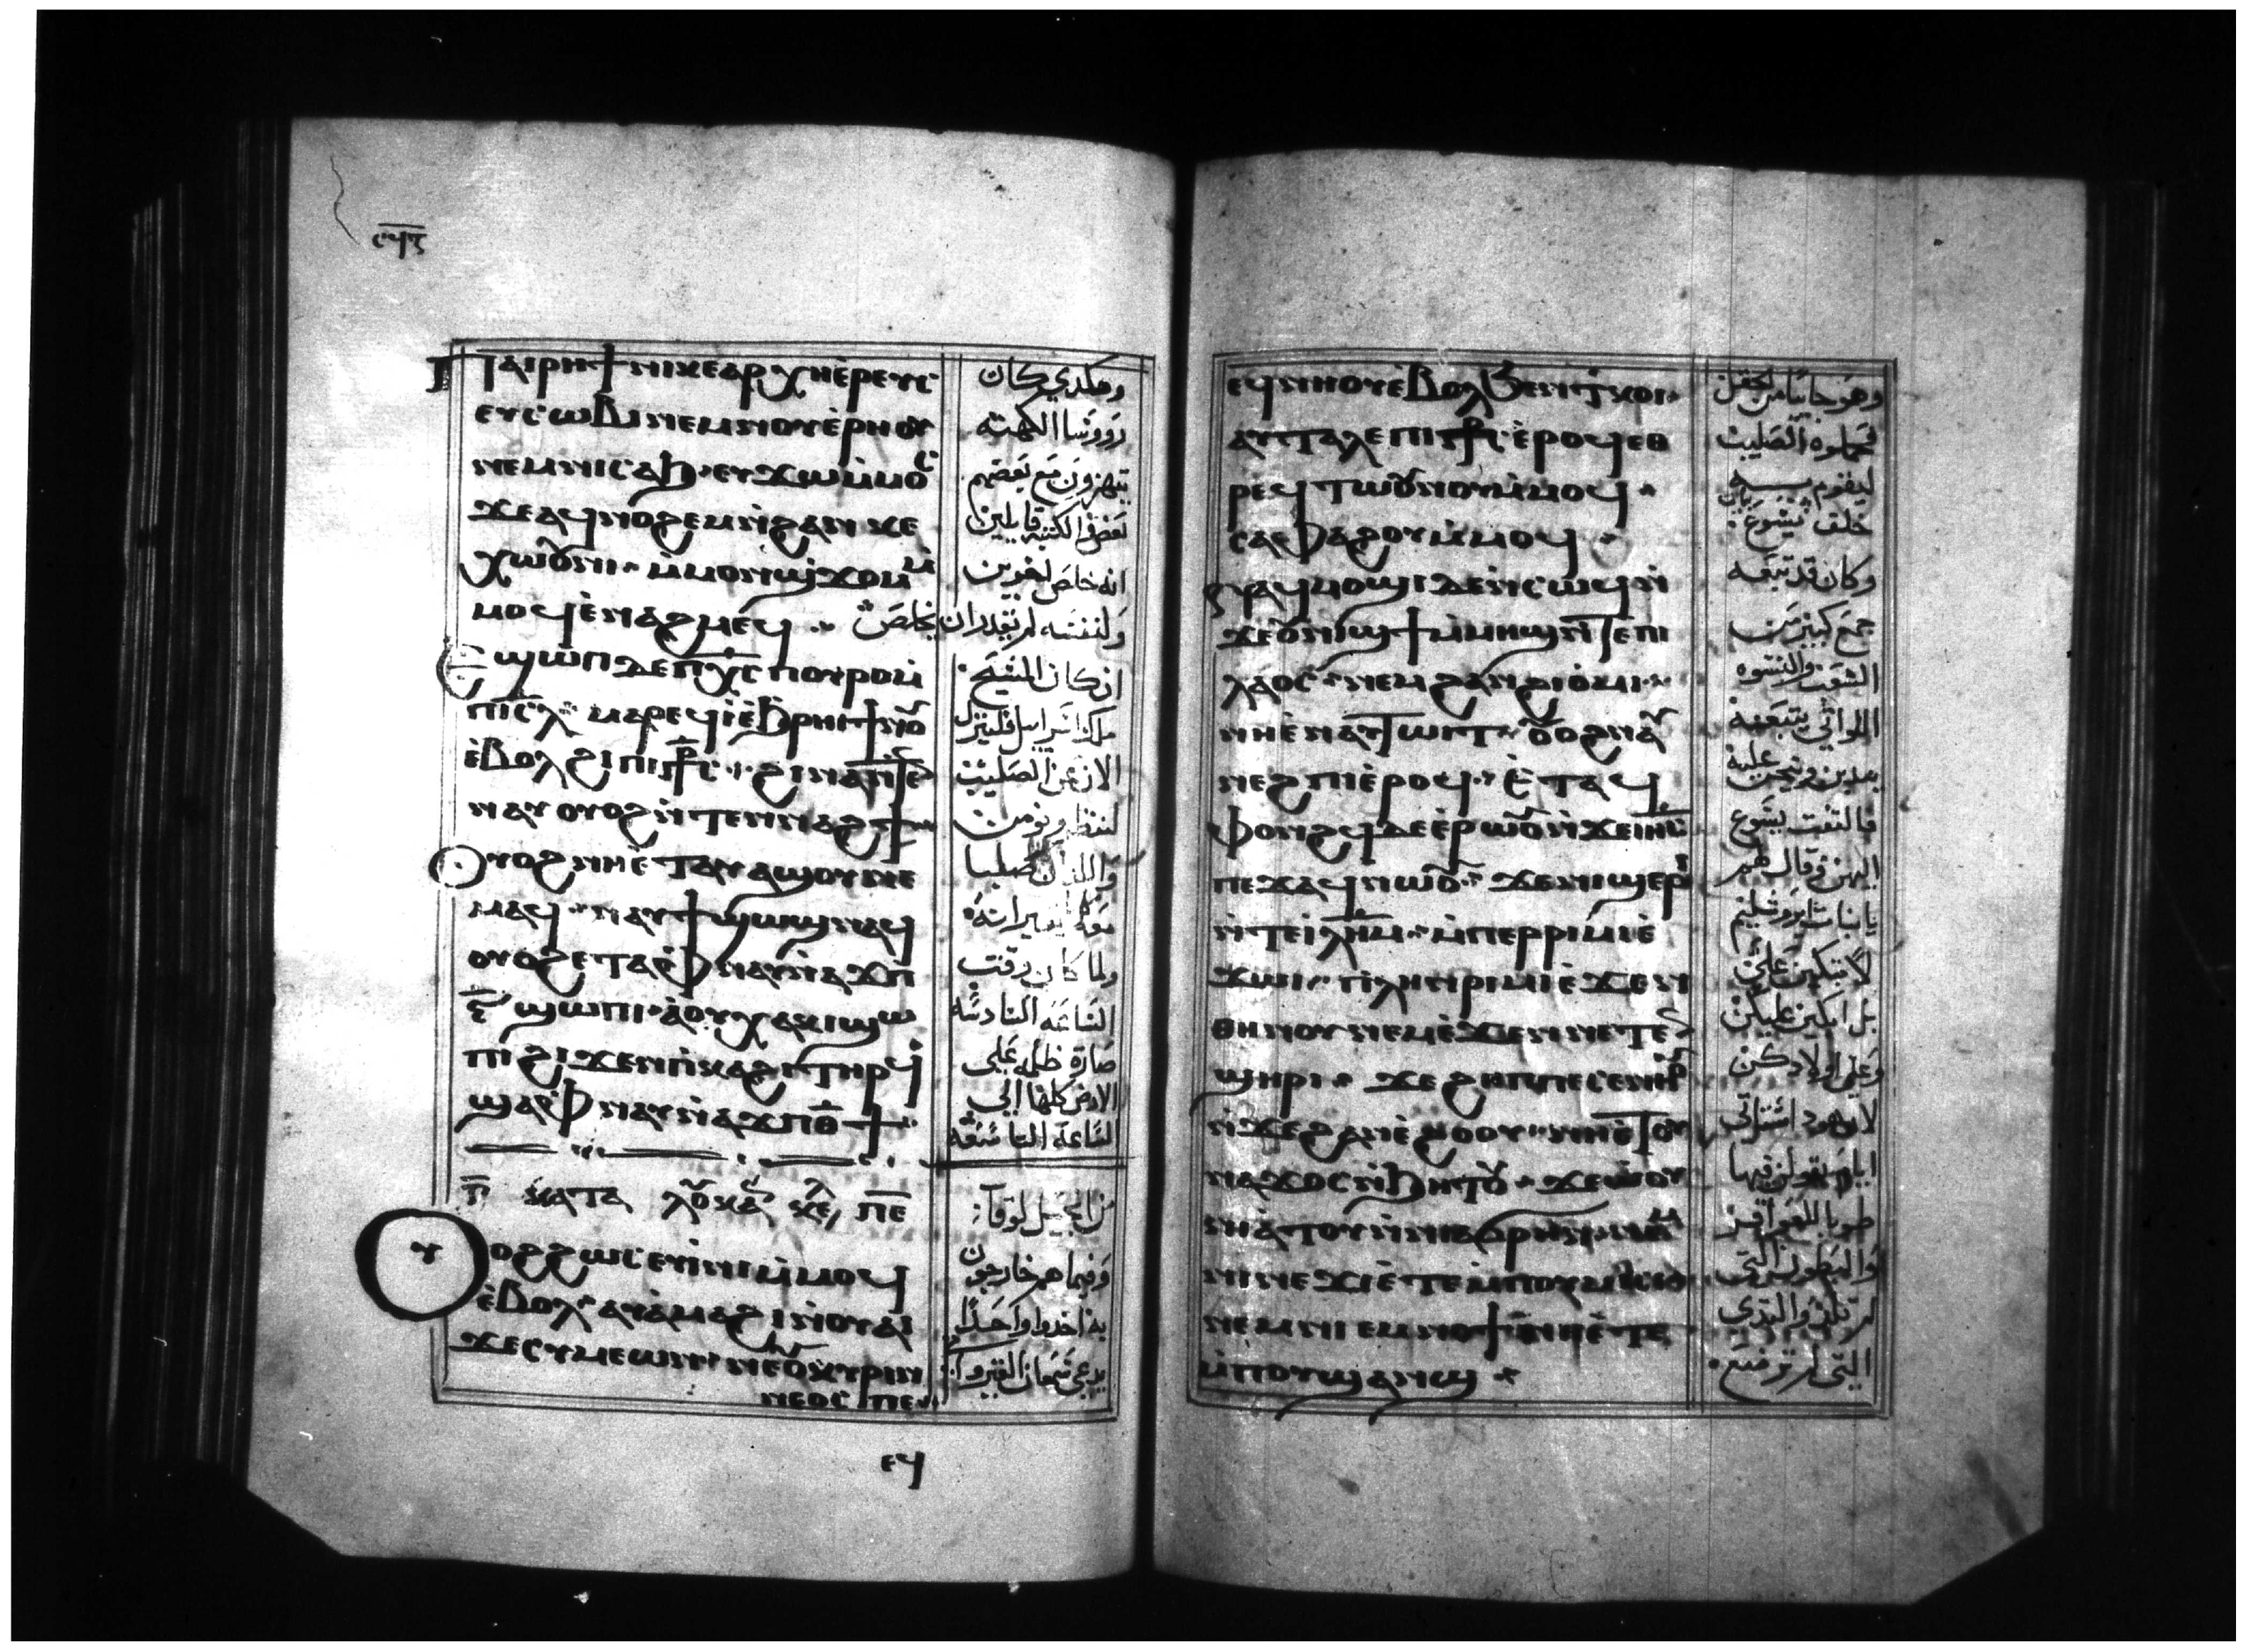 ⲡⲁⲓⲣⲏϯ ⲛⲓⲕⲉⲁⲣⲭⲏⲉ̀ⲣⲉⲩⲥ
ⲉⲩⲥⲱⲃⲓ ⲛⲉⲙ ⲛⲟⲩⲉ̀ⲣⲏⲟⲩ
ⲛⲉⲙ ⲛⲓⲥⲁϧ · ⲉⲩϫⲱ ⲙ̀ⲙⲟⲥ
ϫⲉ ⲁϥⲛⲟϩⲉⲙ ⲛ̀ϩⲁⲛ ⲕⲉ
ⲭⲱⲟⲩⲛⲓ · ⲙ̀ⲙⲟⲛ ϣϫⲟⲙ ⲙ̀
ⲙⲟϥ ⲉ̀ⲛⲁϩⲙⲉϥ
ⲉϣⲱⲡ ⲇⲉ ⲡⲭ̅ⲥ̅ ⲡⲟⲩⲣⲟ ⲙ̀
ⲡⲓⲥ̅ⲗ̅ ⲙⲁⲣⲉϥⲓ̀ ⲉ̀ϧⲣⲏⲓ ϯⲛⲟⲩ
ⲉ̀ⲃⲟⲗ ϩⲓ ⲡⲓⲥ̅ⲧ̅ⲥ̅ · ϩⲓⲛⲁ ⲛ̀ⲧⲉ
ⲛⲁⲩ ⲟⲩⲟϩ ⲛ̀ⲧⲉⲛⲛⲁϩϯ
ⲟⲩⲟϩ ⲛⲏⲉ̀ⲧⲁⲩⲁϣⲟⲩ ⲛⲉ
ⲙⲁϥ · ⲛⲁⲩϯϣⲱϣ ⲛⲁϥ
ⲟⲩⲟϩ ⲉⲧⲁⲫ̀ⲛⲁⲩ ⲛ̀ⲁϫⲡ
ⲋ̅ ϣⲱⲡⲓ · ⲁ̀ⲟⲩⲭⲁⲕⲓ ϣⲱ
ⲡⲓ ϩⲓϫⲉⲛ ⲡ̀ⲕⲁϩⲓ ⲧⲏⲣϥ
ϣⲁ ⲫ̀ⲛⲁⲩ ⲛ̀ⲁϫⲡ ⲑ̅
ⲕⲁⲧⲁ ⲗⲟⲩⲕⲁⲛ ⲕⲉ ⲡ̅ⲉ̅
ⲟⲩⲟϩ ϩⲱⲥ ⲉⲩⲓ̀ⲛⲓ ⲙ̀ⲙⲟϥ
ⲉ̀ⲃⲟⲗ ⲁⲩⲁ̀ⲙⲁϩⲓ ⲛ̀ⲟⲩⲁⲓ
ϫⲉ ⲥⲩⲙⲉⲱⲛ ⲕⲩⲣⲓⲛ
ⲛⲉⲟⲥ ⲡⲉ
ⲉϥ
وهكذي كان
رووسا الكهنه
يتهزون مع بعضهم
بعض والكتبه قايلين
انه خلص اخرين
ولنفسه لم يقدر ان يخلص
ان كان المسيح
ملك اسراييل فلينزل
الان عن الصليب
لننظر ونومن
واللذان صلبا
معه يعيرانه
ولما كان وقت
الساعه السادسه
صارة ظلمه علي
الارض كلها الي
الساعه التاسعه
من انجيل لوقا
وفيما هم خارجون
به اخذوا واحدا
يدعي سمعان القيرواني
ⲉϥⲛⲏⲟⲩ ⲉ̀ⲃⲟⲗ ϧⲉⲛ ⲧ̀ⲕⲟⲓ
ⲁⲩⲧⲁⲗⲉ ⲡⲓⲥ̅ⲧ̅ⲥ̅ ⲉ̀ⲣⲟϥ ⲉⲑ
ⲣⲉϥⲧⲱⲟⲩⲛⲟⲩ ⲙ̀ⲙⲟϥ
ⲥⲁⲫⲁϩⲟⲩ ⲙ̀ⲙⲟϥ
ⲛⲁϥⲙⲟϣⲓ ⲇⲉ ⲛ̀ⲥⲱϥ ⲛ̀
ϫⲉ ⲟⲩⲛⲓϣϯ ⲙ̀ⲙⲏϣ ⲛ̀ⲧⲉ ⲡⲓ
ⲗⲁⲟⲥ ⲛⲉⲙ ϩⲁⲛϩⲓⲟ̀ⲙⲓ
ⲛⲏⲉ̀ⲛⲁⲩⲧⲱⲓⲧ ⲟⲩⲟϩ ⲛⲁⲩ
ⲛⲉϩⲡⲓ ⲉ̀ⲣⲟϥ · ⲉ̀ⲧⲁϥ
ⲫⲟⲛϩϥ ⲇⲉ ⲉ̀ⲣⲱⲟⲩ ⲛ̀ϫⲉ ⲓⲏ̅ⲥ̅
ⲡⲉϫⲁϥ ⲛⲱⲟⲩ ϫⲉ ⲛⲓϣⲉⲣⲓ
ⲛ̀ⲧⲉ ⲓⲗ̅ⲏ̅ⲙ̅ ⲙ̀ⲡⲉⲣⲣⲓⲙⲓ ⲉ̀
ϫⲱⲓ · ⲡⲗⲏⲛ ⲣⲓⲙⲓ ⲉ̀ϫⲉⲛ
ⲑⲏⲛⲟⲩ ⲛⲉⲙ ⲉ̀ϫⲉⲛ ⲛⲉⲧⲉⲛ
ϣⲏⲣⲓ · ϫⲉ ϩⲏⲡⲡⲉ ⲥⲉⲛⲏⲟⲩ
ⲛ̀ϫⲉ ϩⲁⲛⲉ̀ϩⲟⲟⲩ ⲛⲏⲉ̀ⲧⲟⲩ
ⲛⲁϫⲟⲥ ⲛ̀ϧⲏⲧⲟⲩ ϫⲉ ⲱ̀ⲟⲩ
ⲛⲓⲁ̀ⲧⲟⲩ ⲛ̀ⲛⲓⲁϭⲣⲏⲛ ⲛⲉⲙ
ⲛⲓⲛⲉϫⲓ ⲉ̀ⲧⲉ ⲙ̀ⲡⲟⲩⲙⲓⲥⲓ
ⲛⲉⲙ ⲛⲓⲉⲙⲛⲟϯ ⲛⲏⲉ̀ⲧⲉ
ⲙ̀ⲡⲟⲩϣⲁⲛϣ
وهو جايا من الحقل
فحملوه الصليب
ليقوم به
خلف يسوع
وكان قد تبعه
جمع كبير من
الشعب والنسوه
اللواتي يتبعنه
يندبن وينحن عليه
فالتفت يسوع
اليهن وقال لهم
يابنات ايروشليم
لا تبكين علي
بل ابكين عليكن
وعلي اولادكن
ايام يقولن فيها
طوبا للعواقر
والبطون التي
لم تلد والثدي
التي لم ترضع